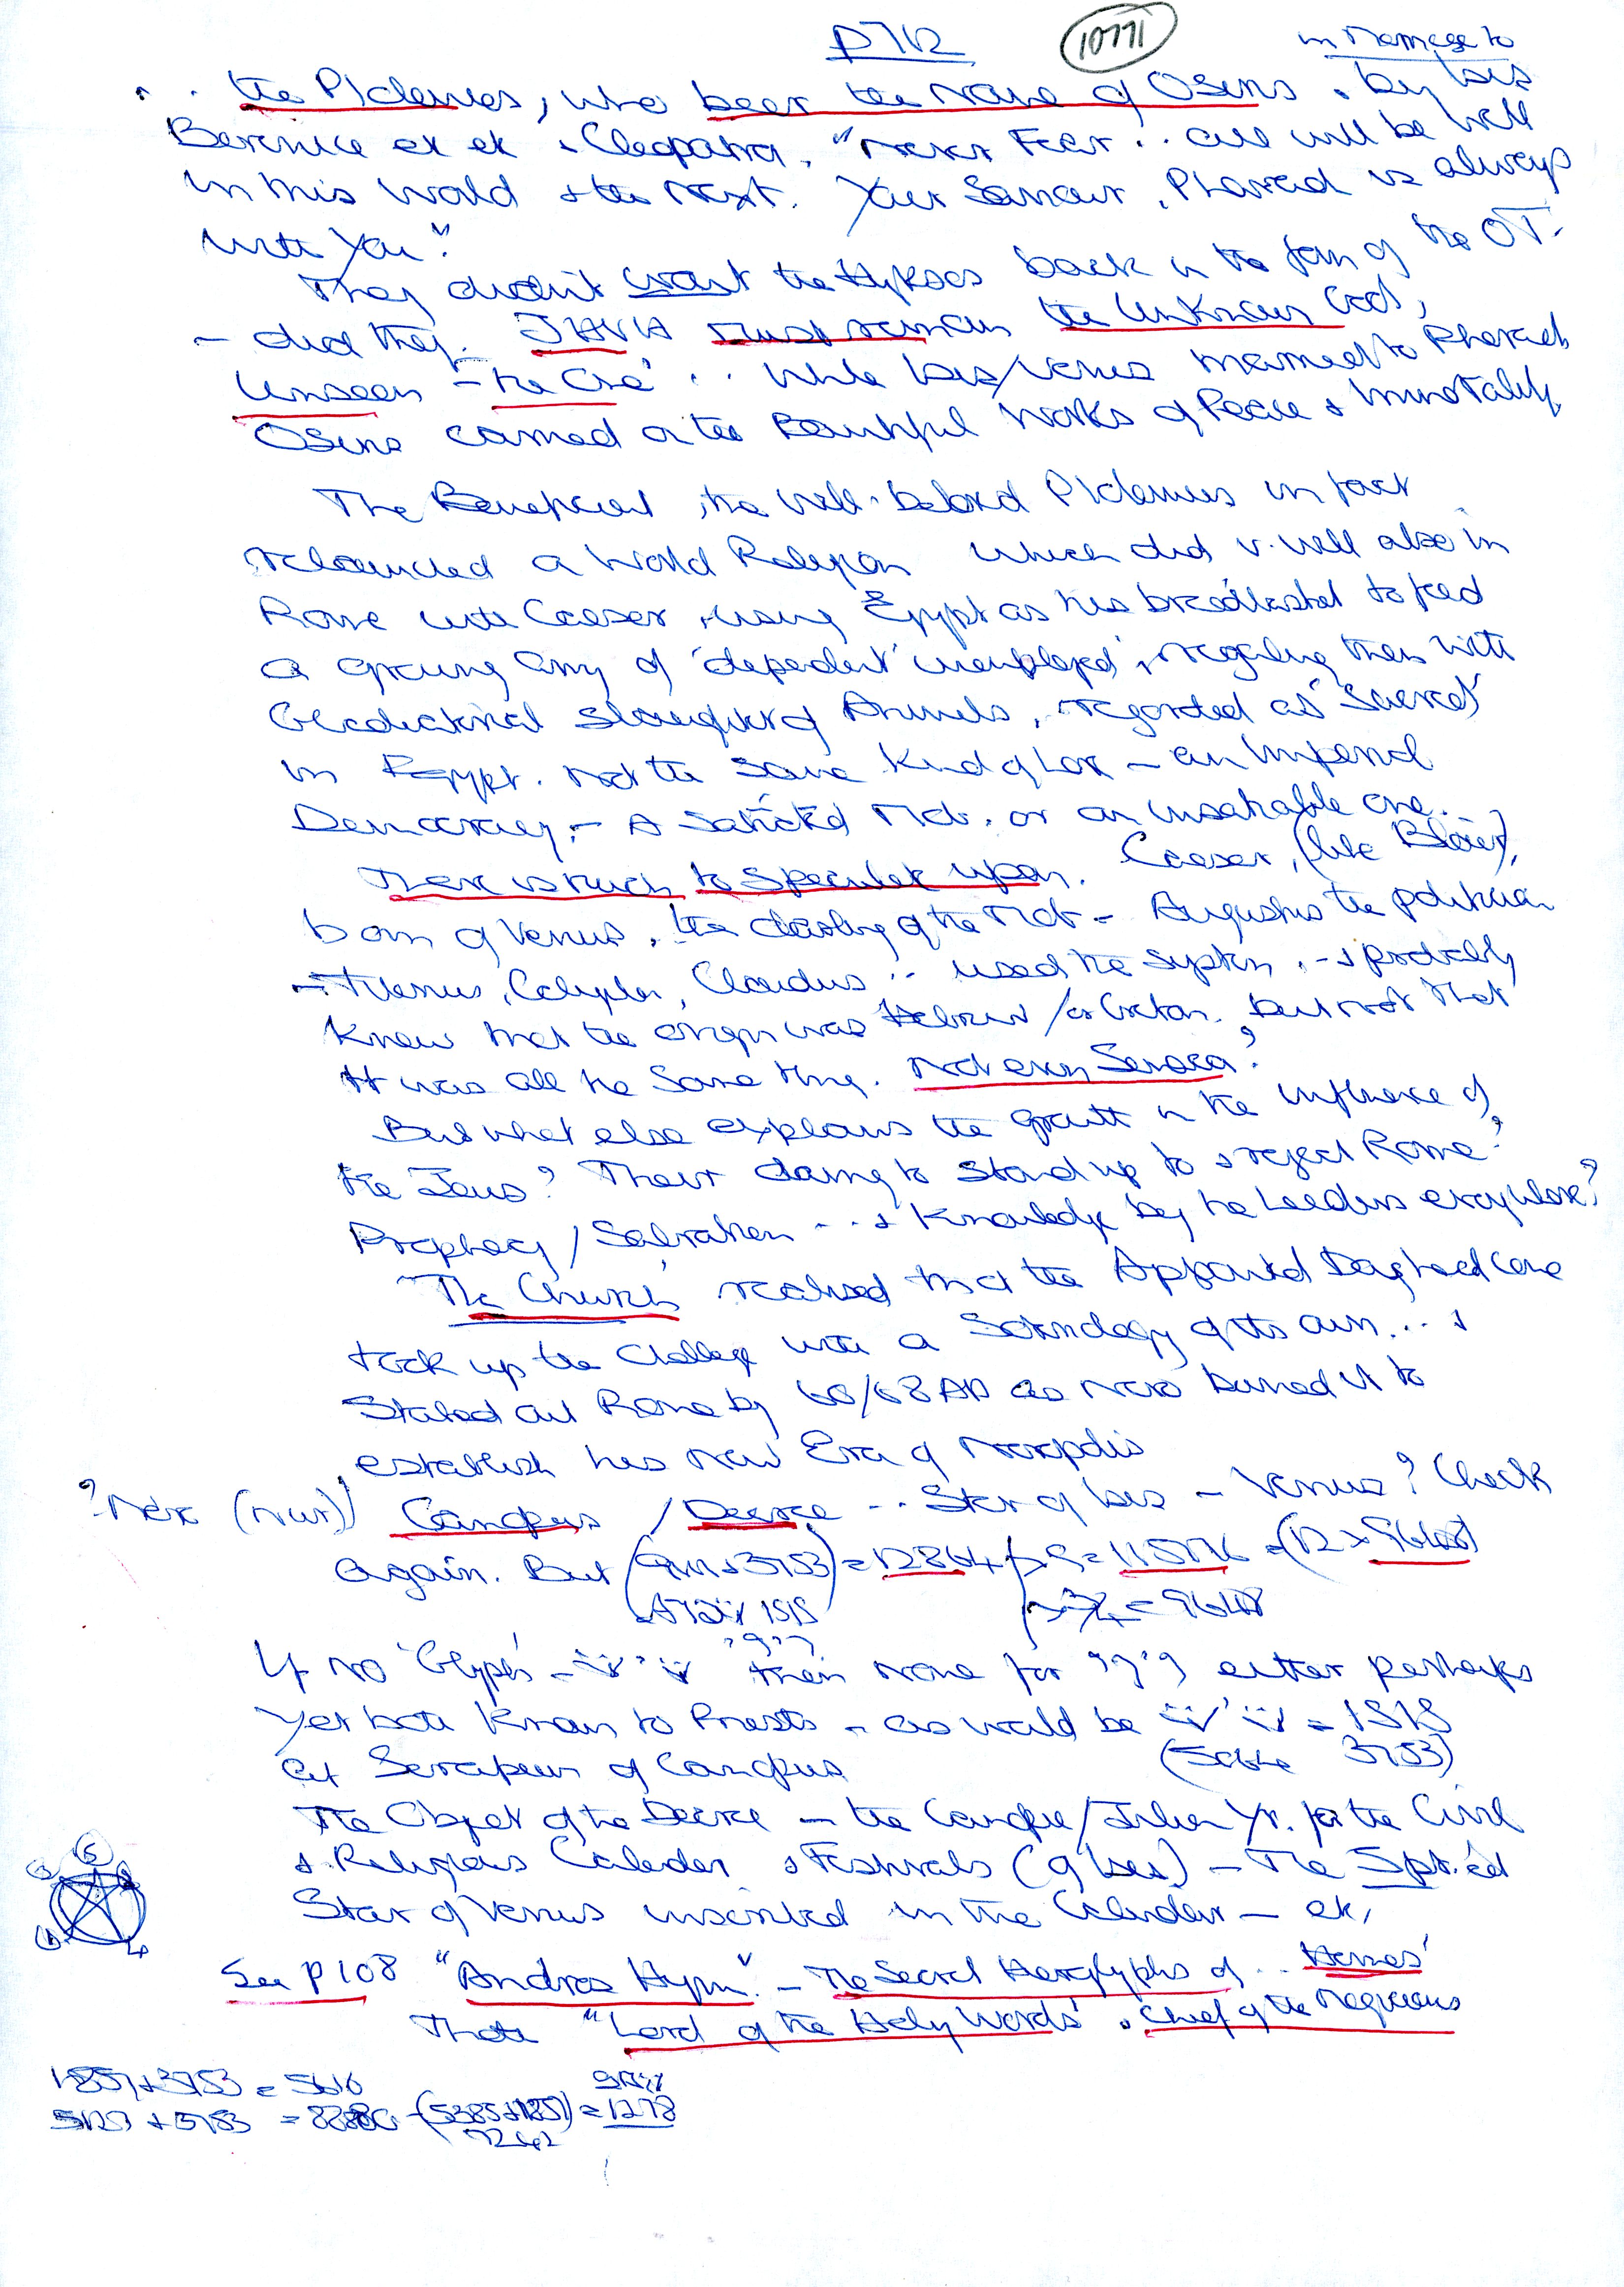 P712
10771
in Marriage to
. . the Ptolemies, who bear the Name of Osiris. by Isis
Berenice et et & Cleopatra. "Never Fear .. all will be well
in this World & the Next. Your Saviour, Pharaoh is always
with You."
They didn't want the Hyksos back in the form of the OT.
- did they. JHVH must remain the Unknown God,
Unseen - 'the One' .. While Isis/Venus married to Pharaoh
Osiris carried on the Beautiful Works of Peace & Immortality.
The Beneficent, the Well-beloved Ptolemies in fact
relaunched a World Religion which did v. well also in
Rome with Caesar, using Egypt as his breadbasket to feed
a growing army of 'dependent' unemployed, regaling them with
Gladiatorial slaughter of Animals, regarded as 'Sacred'
in Egypt. Not the same kind of Love - an Imperial
Democracy. - A Satisfied Mob. or an insatiable one..
There is much to speculate upon. Caesar, (like Blair),
born of Venus, the darling of the Mob - Augustus the politician
- Tiberius, Caligula, Claudius .. used the system, - & probably
knew that the origin was Hebrew / or Cretan, but not that
it was all the same thing. Not even Seneca?
But what else explains the growth in the influence of
the Jews? Their daring to stand up to & reject Rome?
Prophecy / Salvation ... & Knowledge by the Leaders everywhere?
'The Church' realised that the Appointed Day had come
took up the Challenge with a of its own ... &
Staked out Rome by 66/68 AD as Nero burned it to
establish his New Era of Neropolis
? Next (nur)) Canopus / Decree .. Star of Isis - Venus? Check
again. But + 3753) = 12864 x 9 = 115776 = (12 x 9648)
1515 x 3/4 = 9648
If no 'Glyphs' - then None for either perhaps
Yet both known to Priests - as would be = 1515
at Serapeum of Canopus (Sothic 3753)
The Object of the Decree - the Canopic/Julian Yr. for the Civil
& Religious Calendar & Festivals (of Isis) - The 5pt.ed
Star of Venus inscribed in the Calendar - et,
5
See P108 "Andros Hymn". - The Secret Hieroglyphs of .. 'Hermes'
Thoth "Lord of the Holy Words", Chief of the Magicians
1857 + 3753 = 5610
5127 + 3753 = 8880 - (5385 + 1857) = 1278
7242